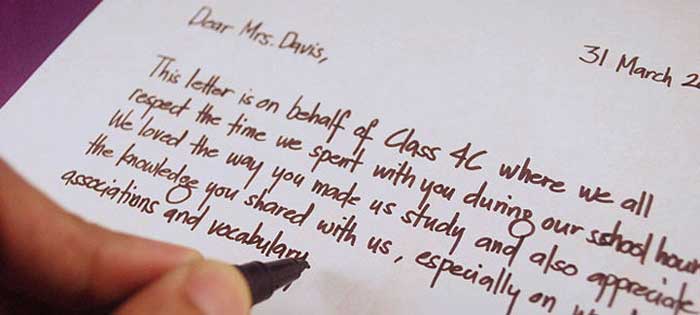 Dear Mrs. Davis,
31 March 2
This letter is on behalf of Class 4C where we all
respect the time we spent with you during our sshool hour
We loved the way you made us study and also appreciate
the knowledge you shared with us, especially on
associations and vocabulary,